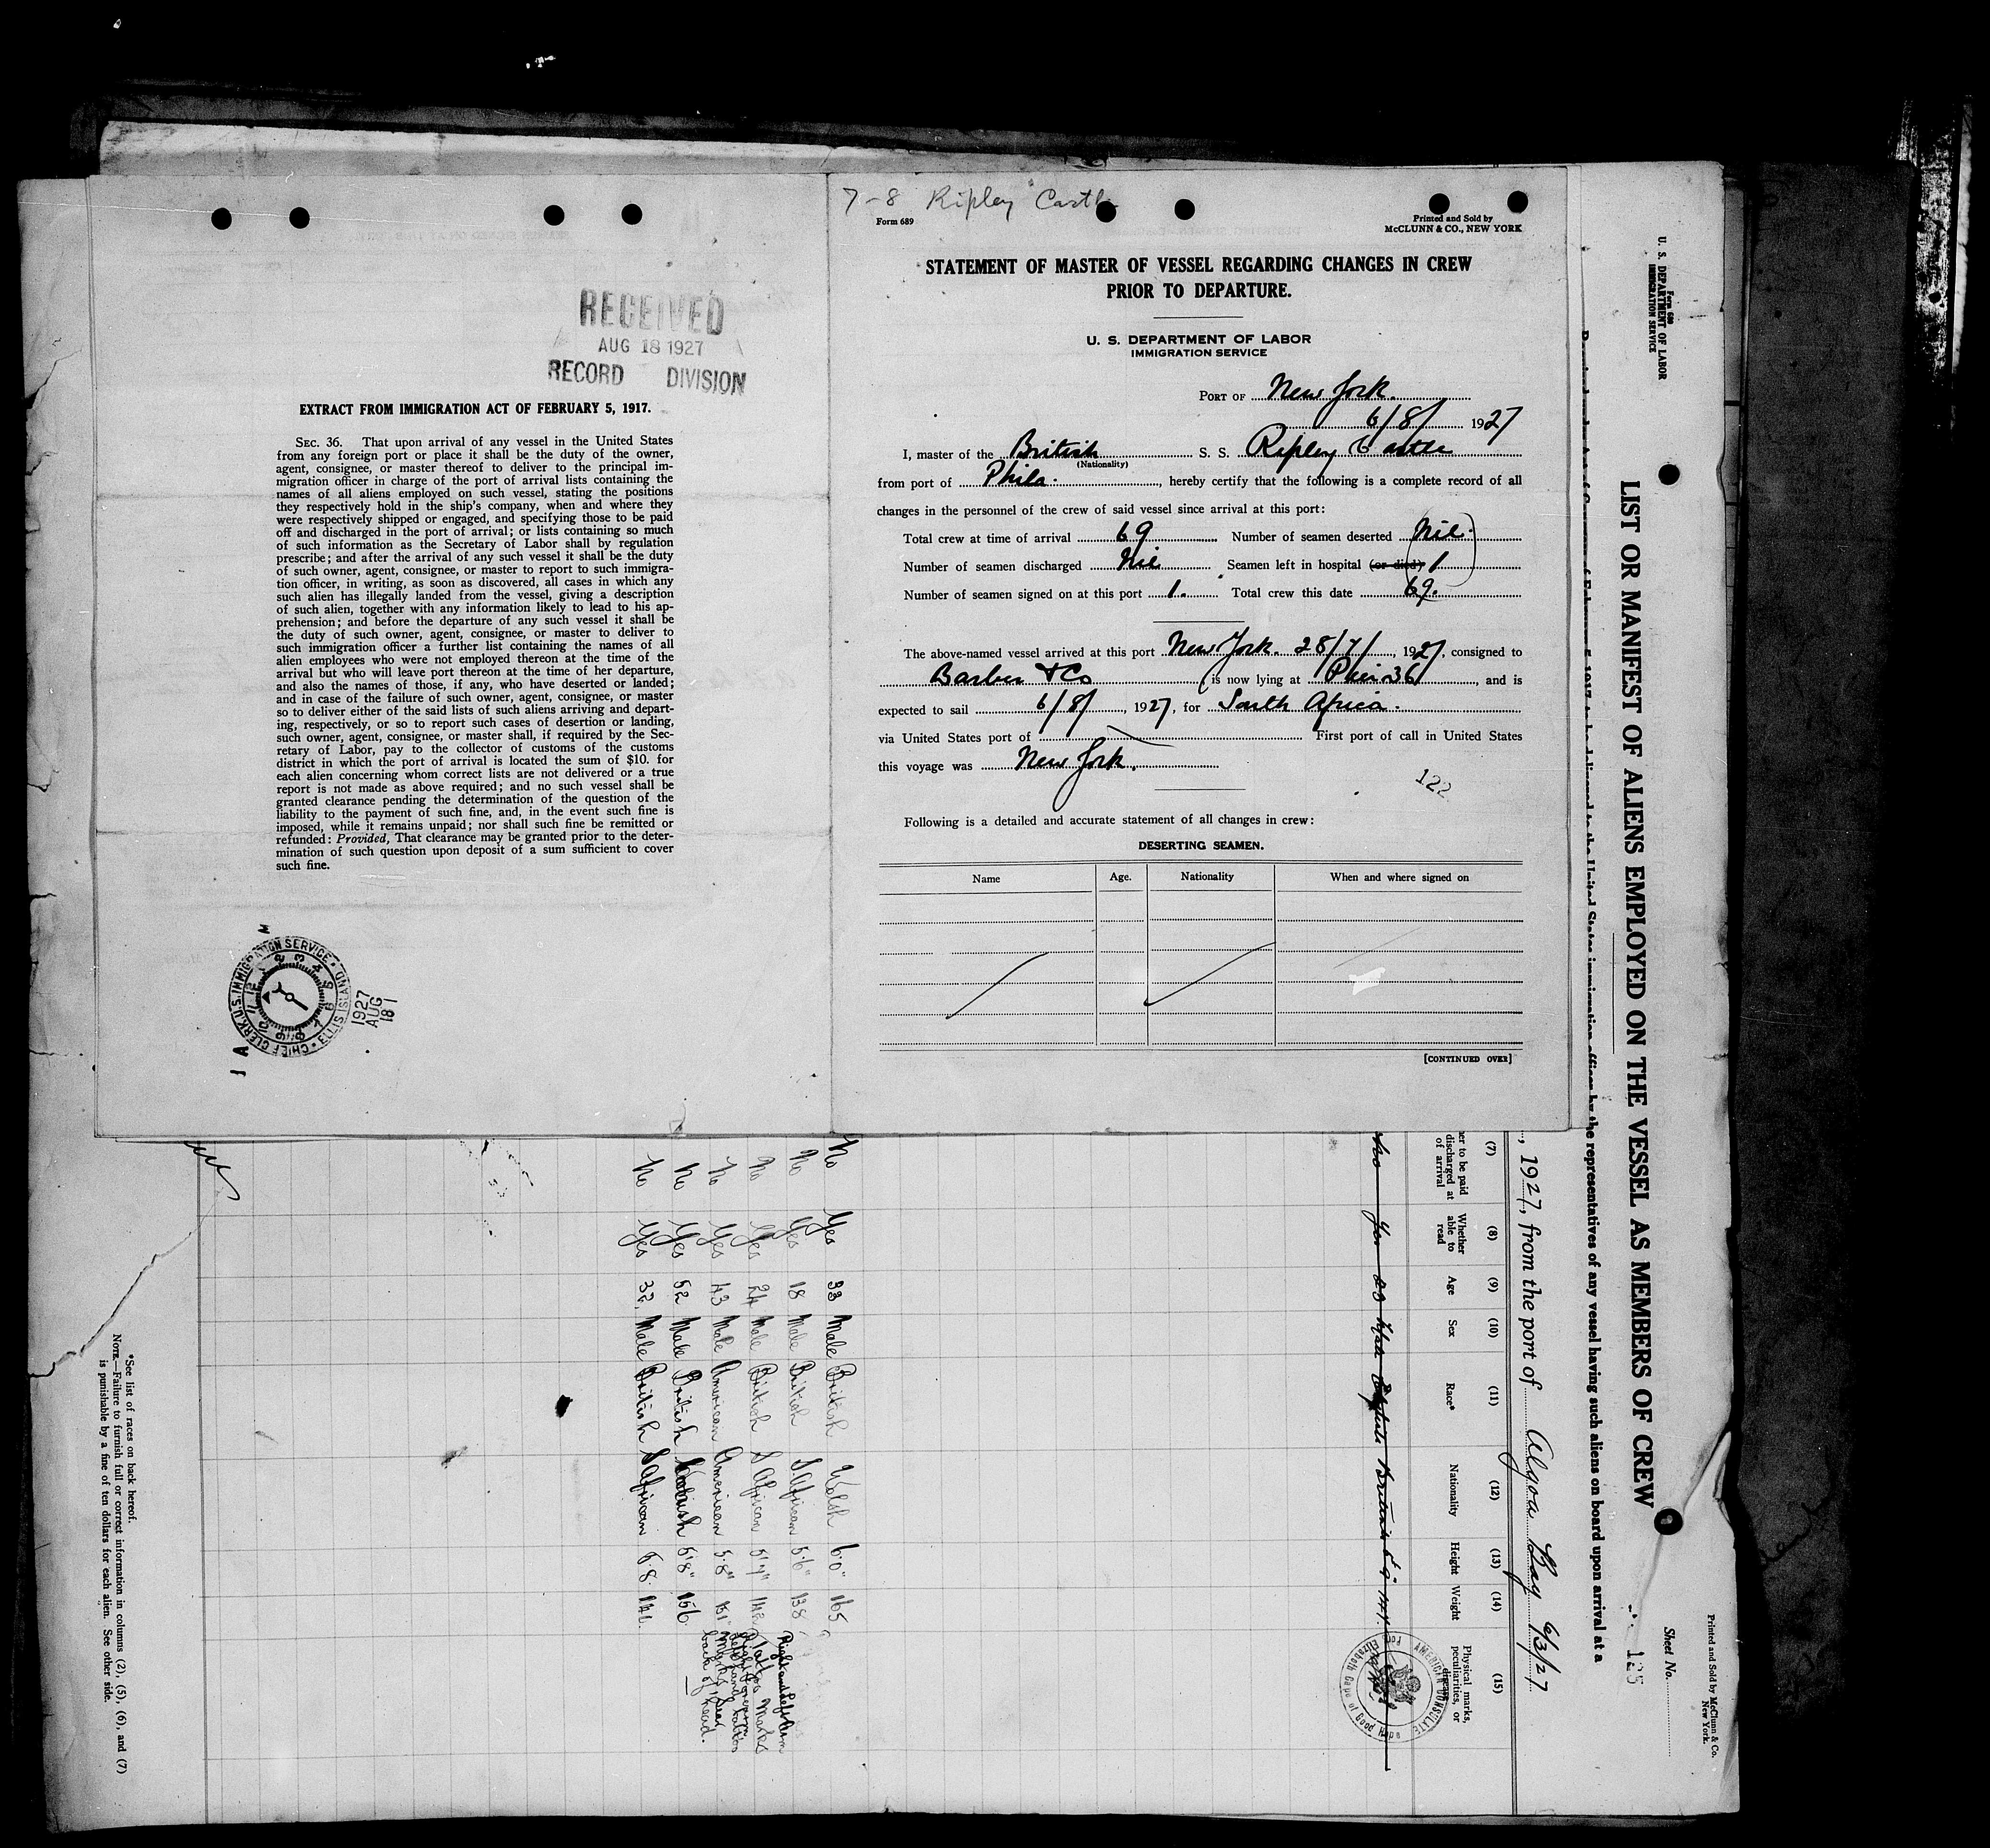 RECEIVED
AUG 18 1927
RECORD DIVISION
EXTRACT FROM IMMIGRATION ACT OF FEBRUARY 5, 1917.
SEC. 36. That upon arrival of any vessel in the United States
from any foreign port or place it shall be the duty of the owner,
agent, consignee, or master thereof to deliver to the principal im-
migration officer in charge of the port of arrival lists containing the
names of all aliens employed on such vessel, stating the positions
they respectively hold in the ship's company, when and where they
were respectively shipped or engaged, and specifying those to be paid
off and discharged in the port of arrival; or lists containing so much
of such information as the Secretary of Labor shall by regulation
prescribe; and after the arrival of any such vessel it shall be the duty
of such owner, agent, consignee, or master to report to such immigra-
tion officer, in writing, as soon as discovered, all cases in which any
such alien has illegally landed from the vessel, giving a description
of such alien, together with any information likely to lead to his ap-
prehension; and before the departure of any such vessel it shall be
the duty of such owner, agent, consignee, or master to deliver to
such immigration officer a further list containing the names of all
alien employees who were not employed thereon at the time of the
arrival but who will leave port thereon at the time of her departure,
and also the names of those, if any, who have deserted or landed;
and in case of the failure of such owner, agent, consignee, or master
so to deliver either of the said lists of such aliens arriving and depart-
ing, respectively, or so to report such cases of desertion or landing,
such owner, agent, consignee, or master shall, if required by the Sec-
retary of Labor, pay to the collector of customs of the customs
district in which the port of arrival is located the sum of $10. for
each alien concerning whom correct lists are not delivered or a true
report is not made as above required; and no such vessel shall be
granted clearance pending the determination of the question of the
liability to the payment of such fine, and, in the event such fine is
imposed, while it remains unpaid; nor shall such fine be remitted or
refunded: Provided, That clearance may be granted prior to the deter-
mination of such question upon deposit of a sum sufficient to cover
such fine.
CHIEF CLERK, U.S. IMMIGRATION SERVICE • ELLIS ISLAND
1927
AUG
18
7-8 Ripley Castle
Form 689
Printed and Sold by
McCLUNN & CO., NEW YORK
STATEMENT OF MASTER OF VESSEL REGARDING CHANGES IN CREW
PRIOR TO DEPARTURE.
U. S. DEPARTMENT OF LABOR
IMMIGRATION SERVICE
PORT OF New York.
6/8/ 1927
I, master of the British S. S. Ripley Castle
(Nationality)
from port of Phila. , hereby certify that the following is a complete record of all
changes in the personnel of the crew of said vessel since arrival at this port:
Total crew at time of arrival 69 Number of seamen deserted Nil
Number of seamen discharged Nil Seamen left in hospital (or died) 1
Number of seamen signed on at this port 1. Total crew this date 69.
The above-named vessel arrived at this port New York. 28/7/, 1927, consigned to
Barber & Co is now lying at Pier 36, and is
expected to sail 6/8/, 1927, for South Africa.
via United States port of First port of call in United States
this voyage was New York.
122
Following is a detailed and accurate statement of all changes in crew:
DESERTING SEAMEN.
Name Age. Nationality When and where signed on
[CONTINUED OVER]
Form 680
U. S. DEPARTMENT OF LABOR
IMMIGRATION SERVICE
Printed and Sold by McClunn & Co.
New York.
Sheet No.
125
LIST OR MANIFEST OF ALIENS EMPLOYED ON THE VESSEL AS MEMBERS OF CREW
the representatives of any vessel having such aliens on board upon arrival at a
, 1927, from the port of Algoa Bay 6/3/27
(7) (8) (9) (10) (11) (12) (13) (14) (15)
to be paid
discharged at
of arrival
Whether
able to
read
Age
Sex
Race*
Nationality
Height
Weight
Physical marks,
peculiarities, or
disease
AMERICAN CONSULATE
Port Elizabeth Cape of Good Hope
No Yes 33 Male British Welsh 6'0" 165
No Yes 18 Male British S. African 5'6" 138
No Yes 24 Male British S African
No Yes 43 Male American American 5'8" 151
No Yes 52 Male British 5'8" 156
No Yes 32 Male British S African 5.8
back of head.
*See list of races on back hereof.
NOTE.—Failure to furnish full or correct information in columns (2), (5), (6), and (7)
is punishable by a fine of ten dollars for each alien. See other side.